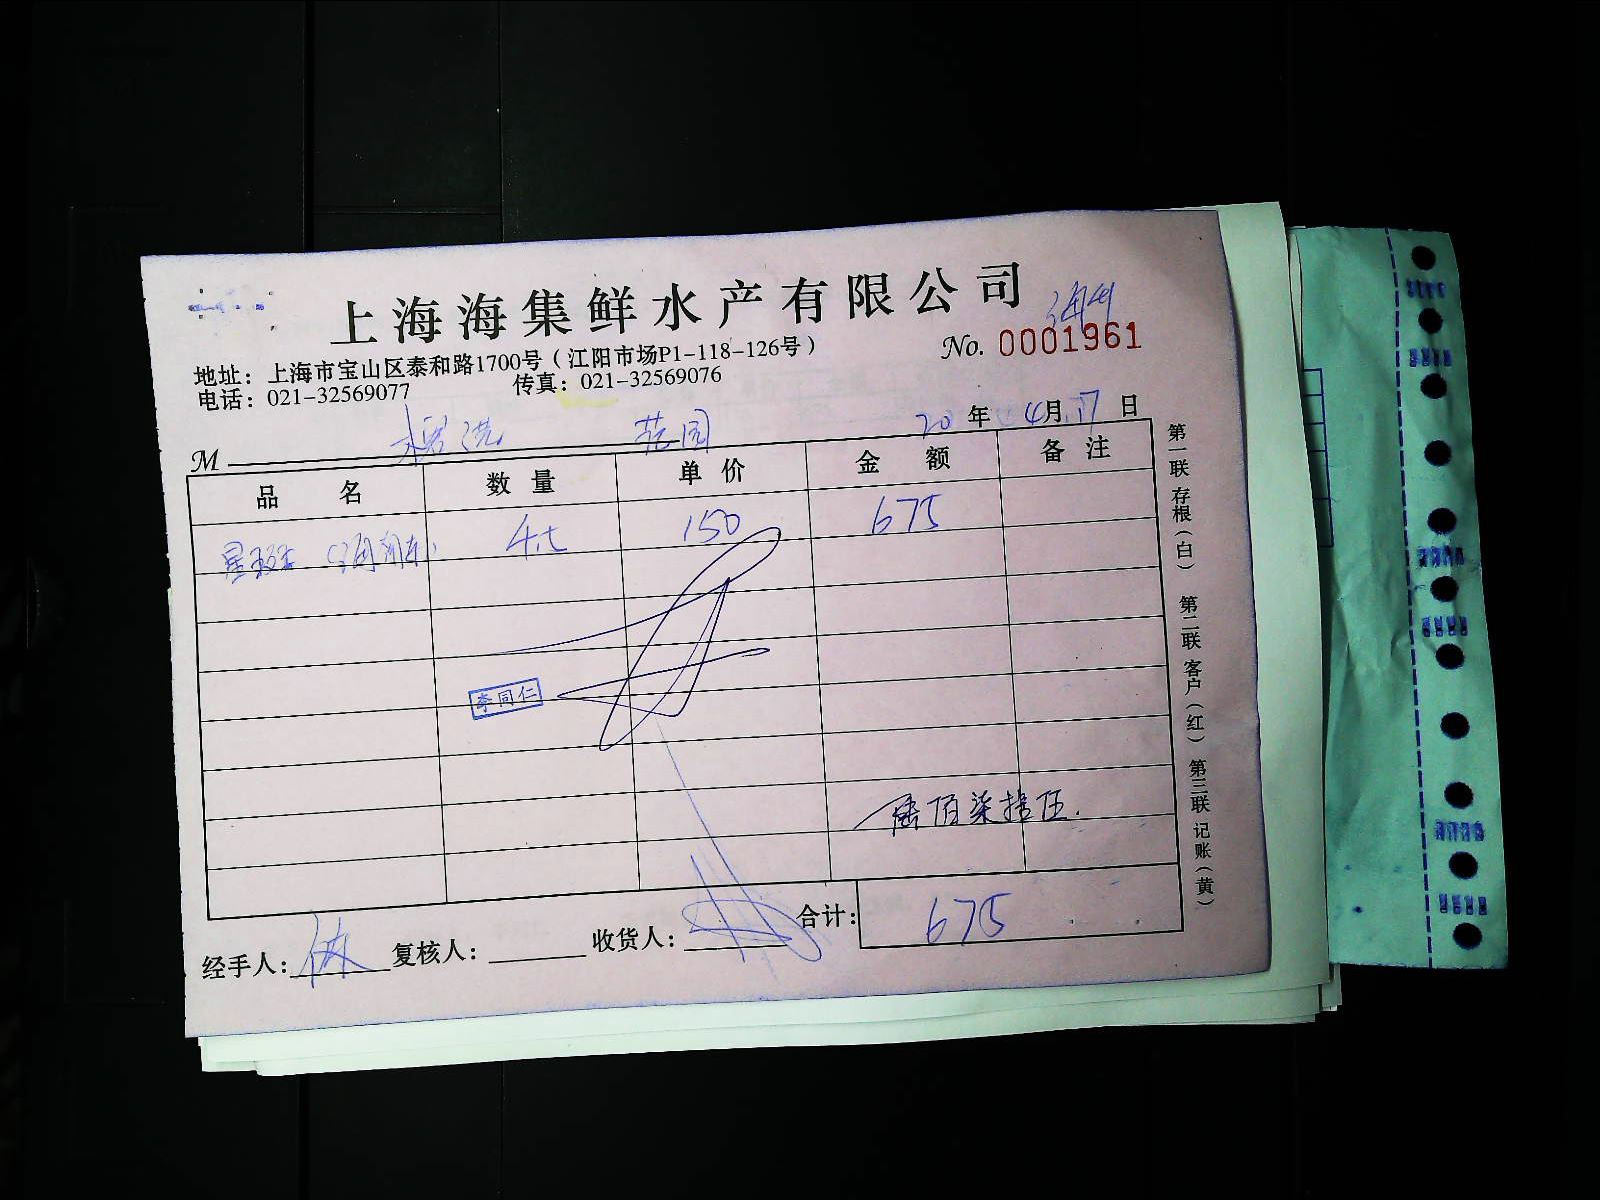 上海海集鲜水产有限公司
地址：上海市宝山区泰和路1700号（江阳市场P1-118-126号）
No. 0001961
电话：021-32569077 传真：021-32569076
20 年 4月17日
M
品名 数量 单价 金额 备注
星斑 4.5 150 675
李同仁
陆佰柒拾伍.
合计： 675
经手人： 复核人： 收货人：
第一联 存根（白） 第二联 客户（红） 第三联 记账（黄）